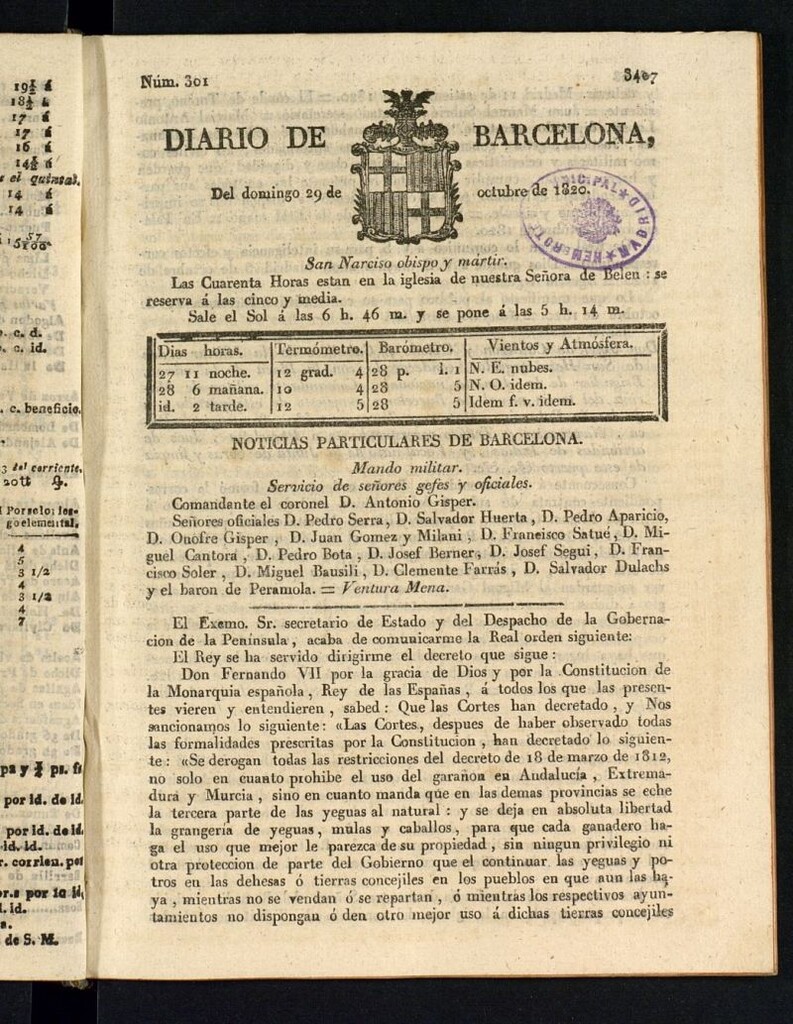 19½ á
18½ á
17 á
17 á
16 á
14½ á
el quintal.
14 á
14 á
c. d.
c. id.
c. beneficio.
3 del corriente,
4
5
3 1/2
4
3 1/2
4
7
por id. de id.
por id. de id.
id. id.
r. corrien. por
por la id.
id.
de S. M.
Núm. 301 3407
DIARIO DE BARCELONA,
Del domingo 29 de octubre de 1820.
MUNICIPAL ★ DIROVM ★ HEMEROT
San Narciso obispo y mártir.
Las Cuarenta Horas estan en la iglesia de nuestra Señora de Belen : se
reserva á las cinco y media.
Sale el Sol á las 6 h. 46 m. y se pone á las 5 h. 14 m.
Dias horas. Termómetro. Barómetro. Vientos y Atmósfera.
27 11 noche. 12 grad. 4 28 p. l. 1 N. E. nubes.
28 6 mañana. 10 4 28 5 N. O. idem.
id. 2 tarde. 12 5 28 5 Idem f. v. idem.
NOTICIAS PARTICULARES DE BARCELONA.
Mando militar.
Servicio de señores gefes y oficiales.
Comandante el coronel D. Antonio Gisper.
Señores oficiales D. Pedro Serra, D. Salvador Huerta, D. Pedro Aparicio,
D. Onofre Gisper , D. Juan Gomez y Milani , D. Francisco Satué, D. Mi-
guel Cantora , D. Pedro Bota , D. Josef Berner, D. Josef Segui , D. Fran-
cisco Soler , D. Miguel Bausili , D. Clemente Farrás , D. Salvador Dulachs
y el baron de Peramola. = Ventura Mena.
El Exemo. Sr. secretario de Estado y del Despacho de la Goberna-
cion de la Península , acaba de comunicarme la Real orden siguiente:
El Rey se ha servido dirigirme el decreto que sigue :
Don Fernando VII por la gracia de Dios y por la Constitucion de
la Monarquia española , Rey de las Españas , á todos los que las presen-
tes vieren y entendieren , sabed : Que las Cortes han decretado , y Nos
sancionamos lo siguiente : «Las Cortes, despues de haber observado todas
las formalidades prescritas por la Constitucion , han decretado lo siguien-
te : «Se derogan todas las restricciones del decreto de 18 de marzo de 1812,
no solo en cuanto prohibe el uso del garañon en Andalucía , Extrema-
dura y Murcia , sino en cuanto manda que en las demas provincias se eche
la tercera parte de las yeguas al natural : y se deja en absoluta libertad
la grangería de yeguas, mulas y caballos, para que cada ganadero ha-
ga el uso que mejor le parezca de su propiedad , sin ningun privilegio ni
otra proteccion de parte del Gobierno que el continuar las yeguas y po-
tros en las dehesas ó tierras concejiles en los pueblos en que aun las ha-
ya , mientras no se vendan ó se repartan , ó mientras los respectivos ayun-
tamientos no dispongan ó den otro mejor uso á dichas tierras concejiles